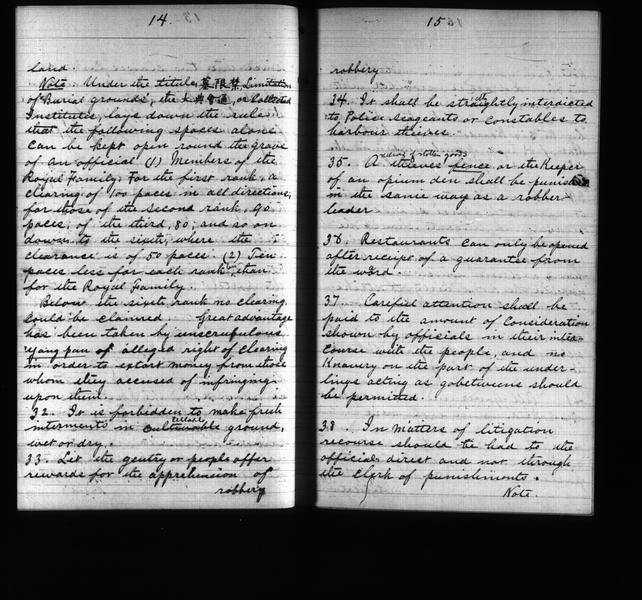 14.
land
Note. Under the title 墓限禁, Limitation
of Burial grounds, the 大典會通, or Collected
Institutes, lays down the rules
that the following spaces alone
can be kept open round the grave
of an official (1) Members of the
Royal Family. For the first rank, a
clearing of 100 paces in all directions,
for those of the second rank, 90
paces, of the third, 80; and so on
down to the sixth, where the
clearance is of 50 paces. (2) Ten
paces less for each rank than
for the Royal Family.
Below the sixth rank no clearing
could be claimed Great advantage
has been taken by unscrupulous
yang pan of alleged right of clearing
in order to extort money from those
whom they accused of infringing
upon them.
32. It is forbidden to make fresh
interments in culturable ground,
wet or dry.
33. Let the gentry or people offer
rewards for the apprehension of
robbery
15
robbery
34. It shall be straightly interdicted
to Police Seageants or Constables to
harbour thieves.
35. A thieves' fence or the Keeper
of an opium den shall be punished
in the same way as a robber
leader
36. Restaurants can only be opened
after receipt of a guarantee from
the ward.
37. Careful attention shall be
paid to the amount of Consideration
shown by officials in their inter
course with the people, and no
Knavery on the part of the under-
lings acting as gobetweens should
be permitted.
38. In matters of litigation
recourse should be had to the
official direct and not through
the Clerk of punishments.
Note.